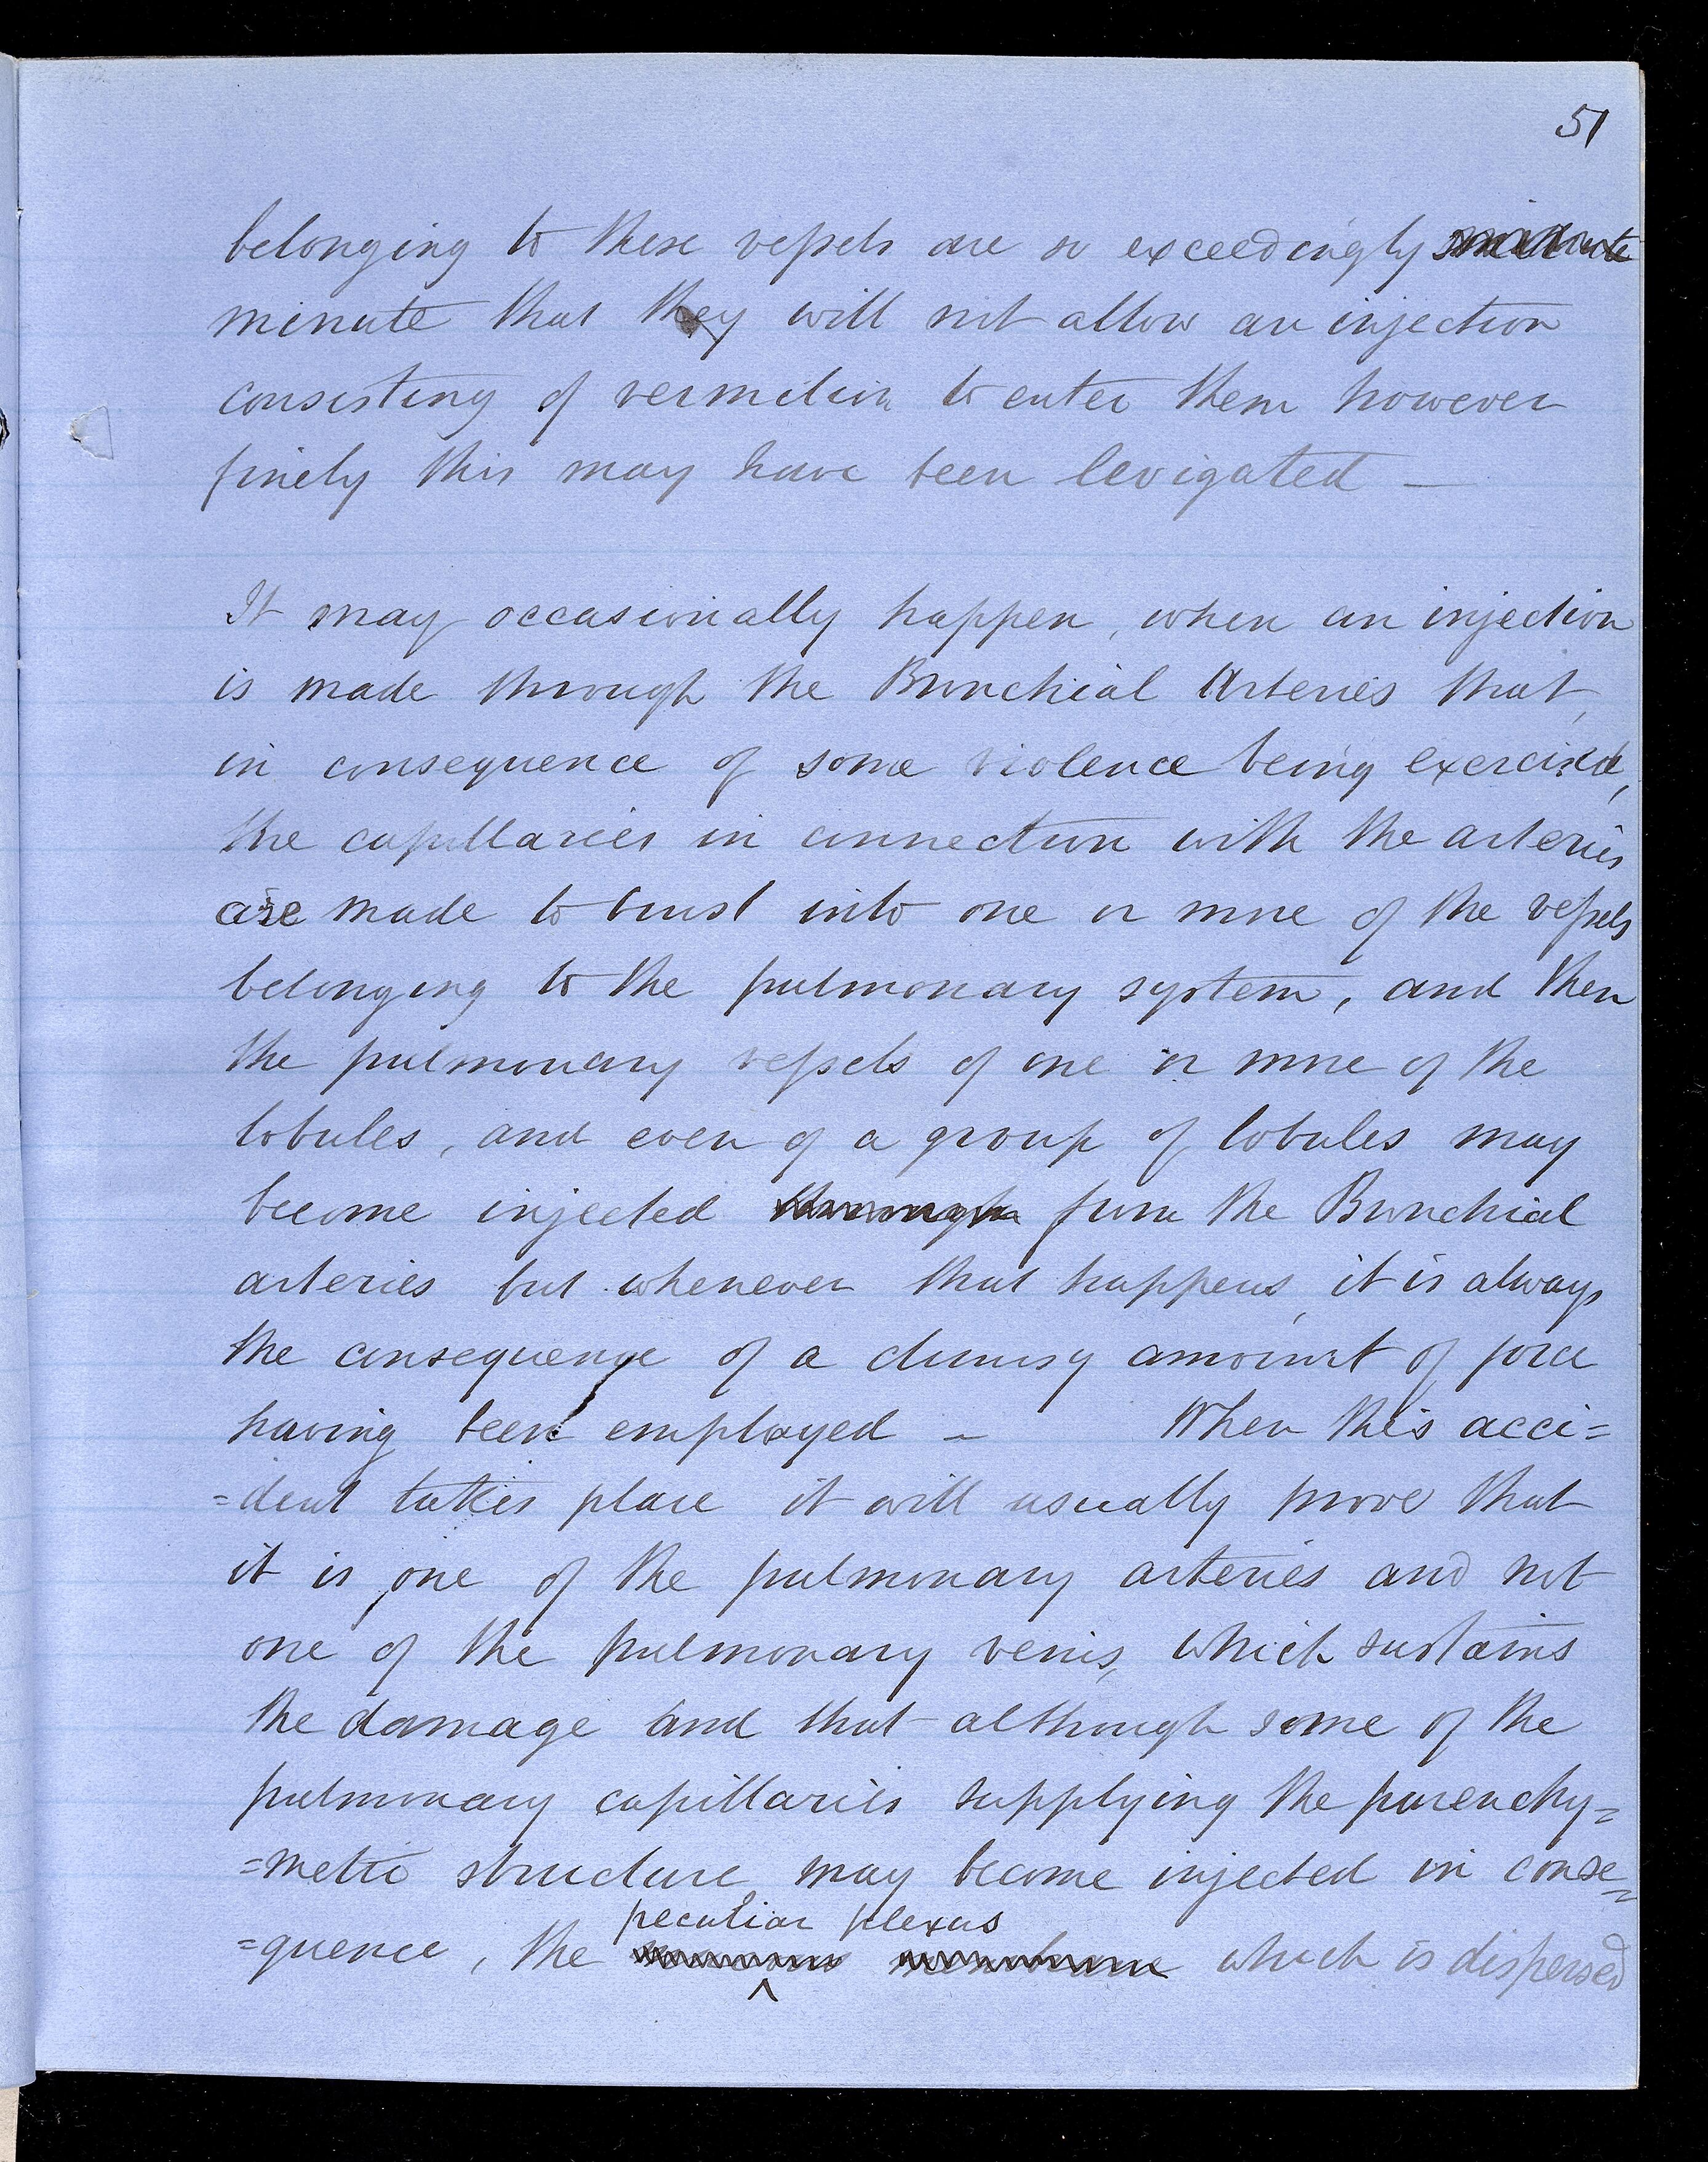 51
belonging to these vessels are so exceedingly minute
minute that they will not allow an injection
consisting of vermilion to enter them however
finely this may have been levigated —
It may occasionally happen, when an injection
is made through the Bronchial Arteries that,
in consequence of some violence being exercised,
the capillaries in connection with the arteries
are made to burst into one or more of the vessels
belonging to the pulmonary system, and then
the pulmonary vessels of one or more of the
lobules, and even of a group of lobules may
become injected through from the Bronchial
arteries but whenever that happens, it is always
the consequence of a clumsy amount of force
having been employed — When this acci=
=dent takes place it will usually prove that
it is one of the pulmonary arteries and not
one of the pulmonary veins, which sustains
the damage and that although some of the
pulmonary capillaries supplying the parenchy=
=matic structure may become injected in conse=
peculiar plexus
=quence, the which is dispersed